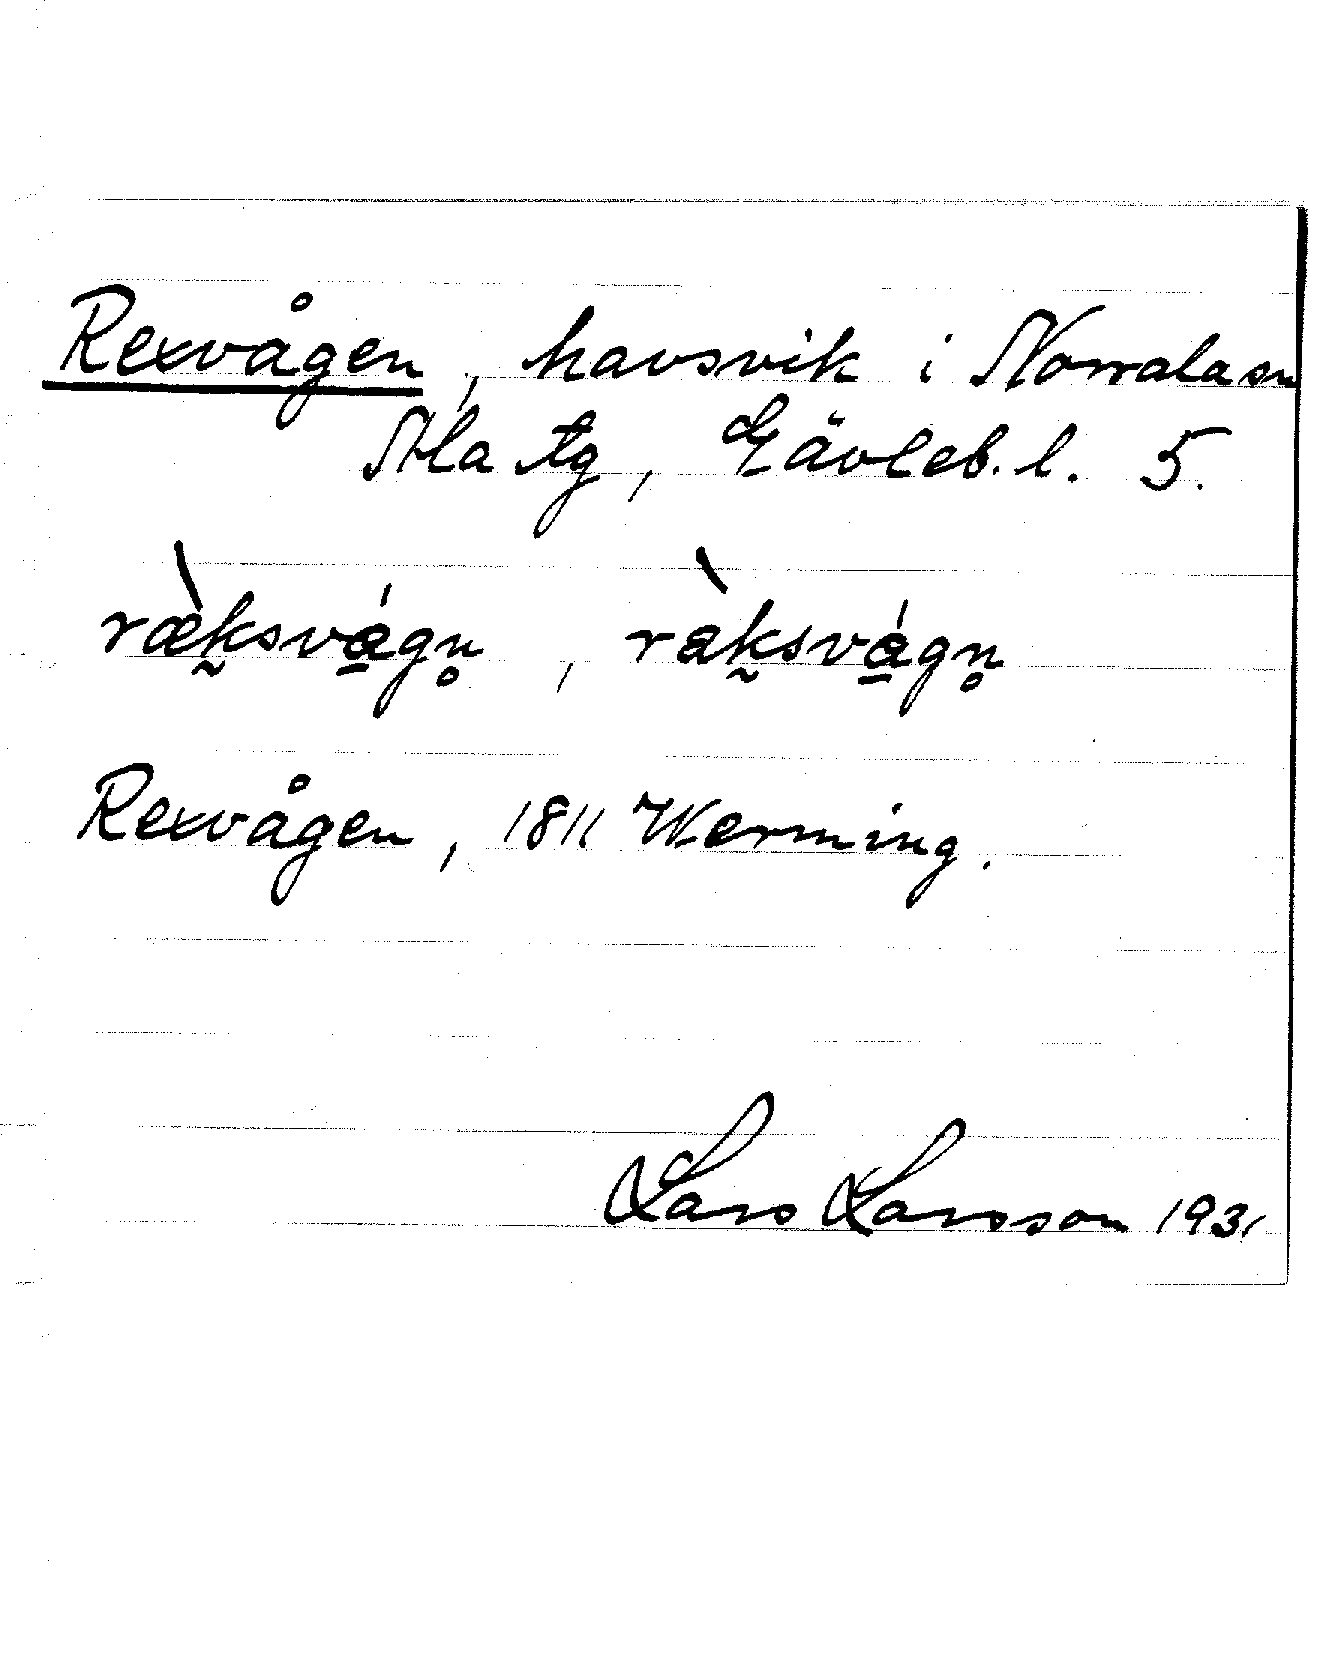 Rexvågen, havsvik i Norrala sn
Ala tg, Gävleb. l. 5.
ræ̀k̰svá̱gn̥, ràk̰svá̱gn̥
Rexvågen, 1811 Werming.
Lars Larsson 1931